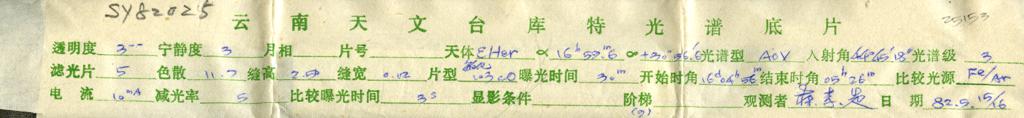 SY82025
云南天文台库特光谱底片
25153
透明度 3 宁静度 3 月相 片号 天体 εHer α 16ʰ 59ᵐ.6 光谱型 A0V 入射角 光谱级 3
滤光片 5 色散 11.7 缝高 2.50 缝宽 0.12 片型 103aO 曝光时间 30ᵐ 开始时角 结束时角 05ʰ26ᵐ 比较光源 Fe/Ar
电流 10mA 减光率 5 比较曝光时间 3ˢ 显影条件 阶梯 观测者 日期 82.5.15/16